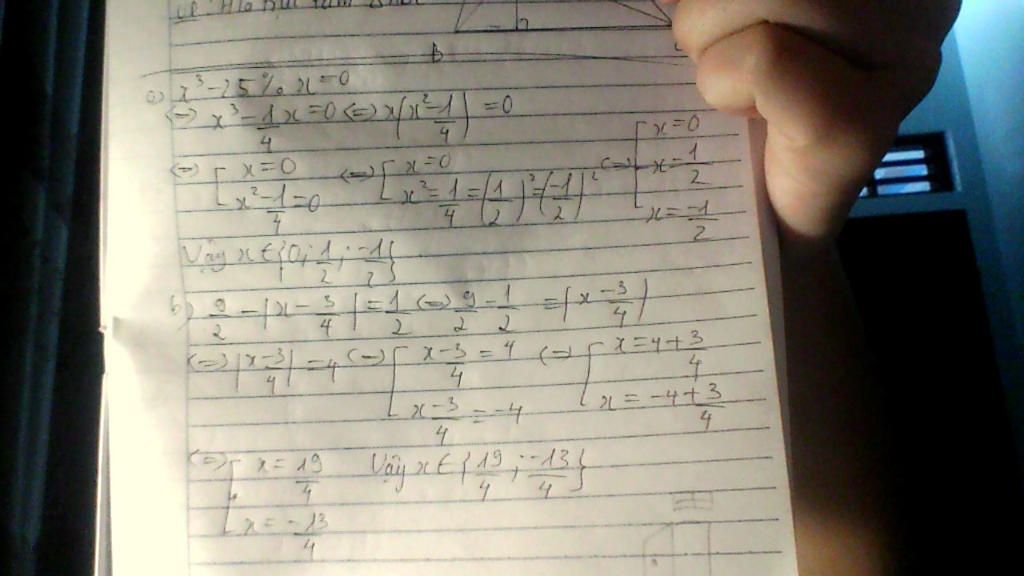 B
a) x³ - 25% x = 0
<=> x³ - 1/4 x = 0 <=> x(x² - 1/4) = 0
<=> [ x = 0 <=> [ x = 0 <=> [ x = 0
x² - 1/4 = 0 x² = 1/4 = (1/2)² = (-1/2)² x = 1/2
x = -1/2
Vậy x ∈ {0; 1/2; -1/2}
b) 9/2 - |x - 3/4| = 1/2 <=> 9/2 - 1/2 = |x - 3/4|
<=> |x - 3/4| = 4 <=> [ x - 3/4 = 4 <=> [ x = 4 + 3/4
x - 3/4 = -4 x = -4 + 3/4
<=> [ x = 19/4 Vậy x ∈ {19/4; -13/4}
x = -13/4